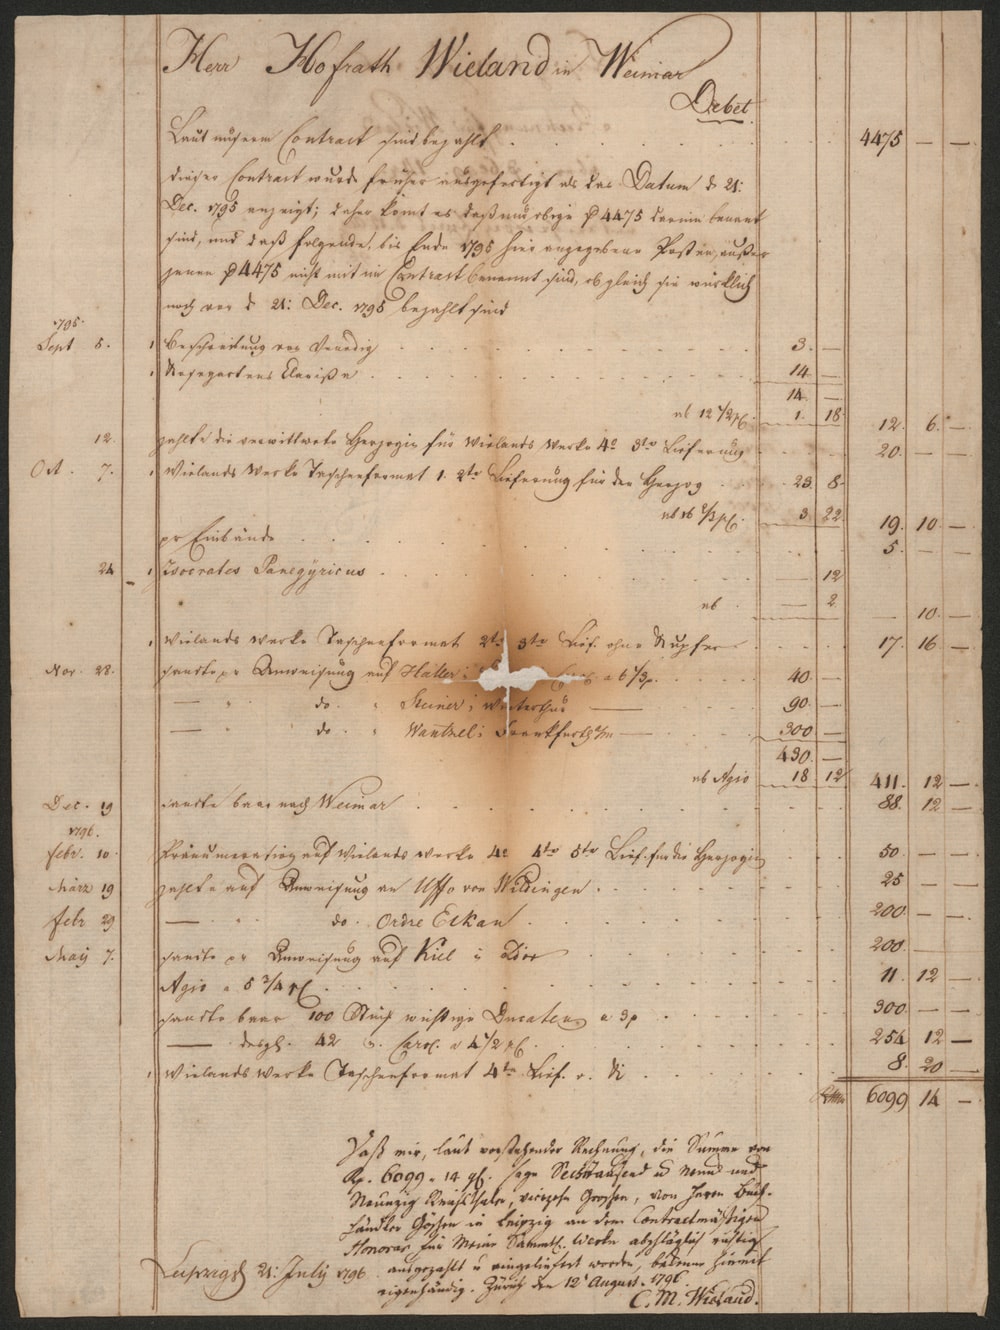 Herr Hofrath Wieland in Weimar
Debet
Laut unserm Contract sind bezahlt 4475 — —
dieser Contract wurde früher ausgefertigt als das Datum d 21:
Dec. 1795 anzeigt; daher komt es daß nur obige 4475 darinn benant
sind, und daß folgende, bis Ende 1795 hier angegebene Posten, außer
jenen 4475 nicht mit im Contract benennt sind, obgleich sie würklich
noch vor d 21: Dec. 1795 bezahlt sind
1795.
Sept 5. 1 Beschreibung von Venedig 3. —
1 Rosegartens Clarisse 14 —
14 —
ab 12 1/2 1. 18 12. 6. —
12. zahlte die verwittwete Herzogin für Wielands Werke 4o 3te Lieferung 20. — —
Oct. 7. 1 Wielands Werke Taschenformat 1. 2te Lieferung für den Herzog 23 8
ab 3 22 19. 10 —
pr Einbände 5. — —
24 — 1 Isocrates Panegyricus 12
ab — 2 10. —
1 Wielands Werke Taschenformat 2te 3te Lief. ohne Kupfer 17. 16 —
Nov. 28. sandte pr Anweisung auf Haller 40 —
— " do. " Steiner i Winterthur — 90. —
— " do " Wantzel i Frankfurth — 300 —
430. —
ab Agio 18 12 411. 12 —
Dec. 19 sandte baar nach Weimar 88. 12 —
1796.
febr. 10 Pränumeration auf Wielands Werke 4o 4te 5te Lief. für die Herzogin 50 — —
März 19 zahlte auf Anweisung an Uffo von Wildingen 25 — —
febr 29 — " do. Ordre Eckan 200 — —
May 7. sandte pr Anweisung auf Kiel 200 — —
Agio a 5 3/4 11 12 —
sandte baar 100 Stück wichtige Ducaten a 3 300 — —
— desgl. 42 Carol. a 254 12 —
1 Wielands Werke Taschenformat 4te Lief. 8. 20 —
6099 14 —
Daß mir, laut vorstehender Rechnung, die Summe von
Rp. 6099 " 14 gl. sage Sechstausend u neun und
Neunzig Reichsthaler, vierzehn Groschen, von Herrn Buch-
händler Göschen in Leipzig an dem Contractmäßigen
Honorar für Meine Sämmtl. Werke abschläglich richtig
ausgezahlt u eingeliefert worden, bekenne hiermit
eigenhändig. Zürich den 12t August. 1796.
Leipzig d 21: July 1796
C. M. Wieland.